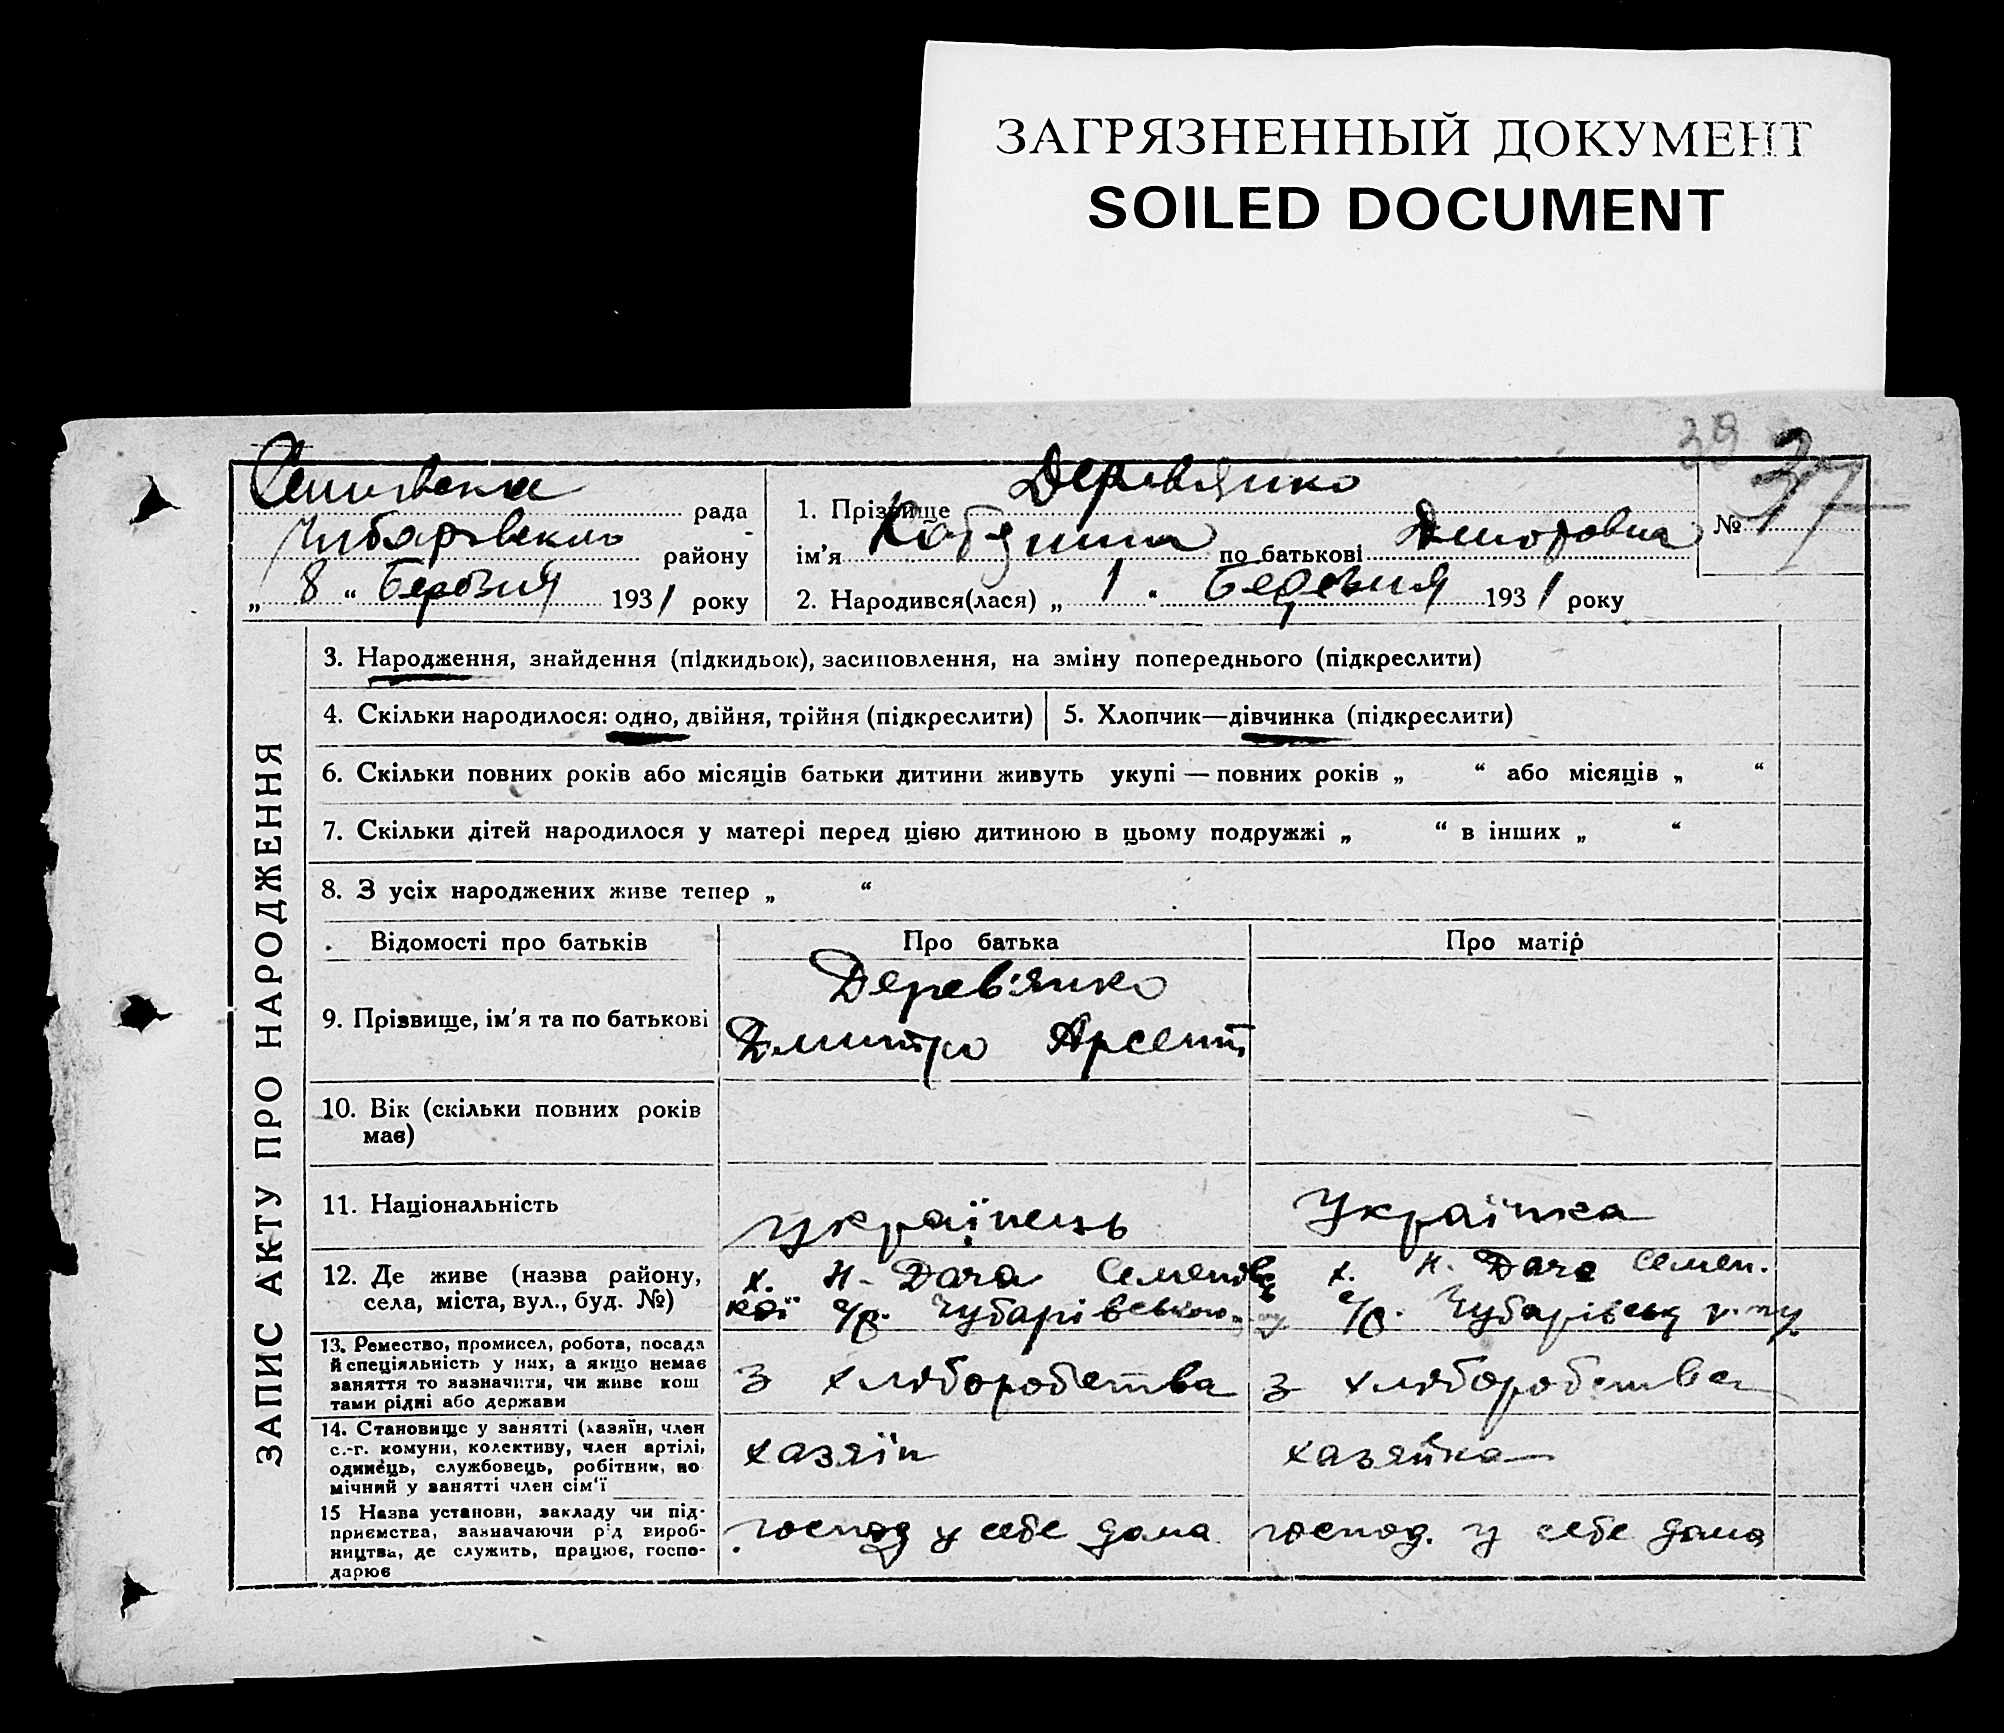 ЗАГРЯЗНЕННЫЙ ДОКУМЕНТ
SOILED DOCUMENT
38
рада
району
„ 8 “ Березня 1931 року
1. Прізвище Деревянко
ім'я по батькові
2. Народився(лася) „ 1 “ Березня 1931 року
№ 37
ЗАПИС АКТУ ПРО НАРОДЖЕННЯ
3. Народження, знайдення (підкидьок), засиновлення, на зміну попереднього (підкреслити)
4. Скільки народилося: одно, двійня, трійня (підкреслити)
5. Хлопчик—дівчинка (підкреслити)
6. Скільки повних років або місяців батьки дитини живуть укупі — повних років „ “ або місяців „ “
7. Скільки дітей народилося у матері перед цією дитиною в цьому подружжі „ “ в інших „ “
8. З усіх народжених живе тепер „ “
Відомості про батьків
Про батька
Про матір
9. Прізвище, ім'я та по батькові
Дерев'янко
Дмитро Арсент
10. Вік (скільки повних років
має)
11. Національність
українець
Українка
12. Де живе (назва району,
села, міста, вул., буд. №)
х. Н. Дача Семенівсь
кої с/р. Чубарівського
х. Н. Дача Семен.
с/р. Чубарівськ р-ну
13. Ремество, промисел, робота, посада
й спеціяльність у них, а якщо немає
заняття то зазначити, чи живе кош
тами рідні або держави
з хліборобства
з хліборобства
14. Становище у занятті (хазяїн, член
с.-г. комуни, колективу, член артілі,
одинець, службовець, робітник, по
мічний у занятті член сім'ї
хазяїн
хазяйка
15 Назва установи, закладу чи під-
приємства, зазначаючи рід вироб-
ництва, де служить, працює, госпо-
дарює
господ у себе дома
господ. у себе дома